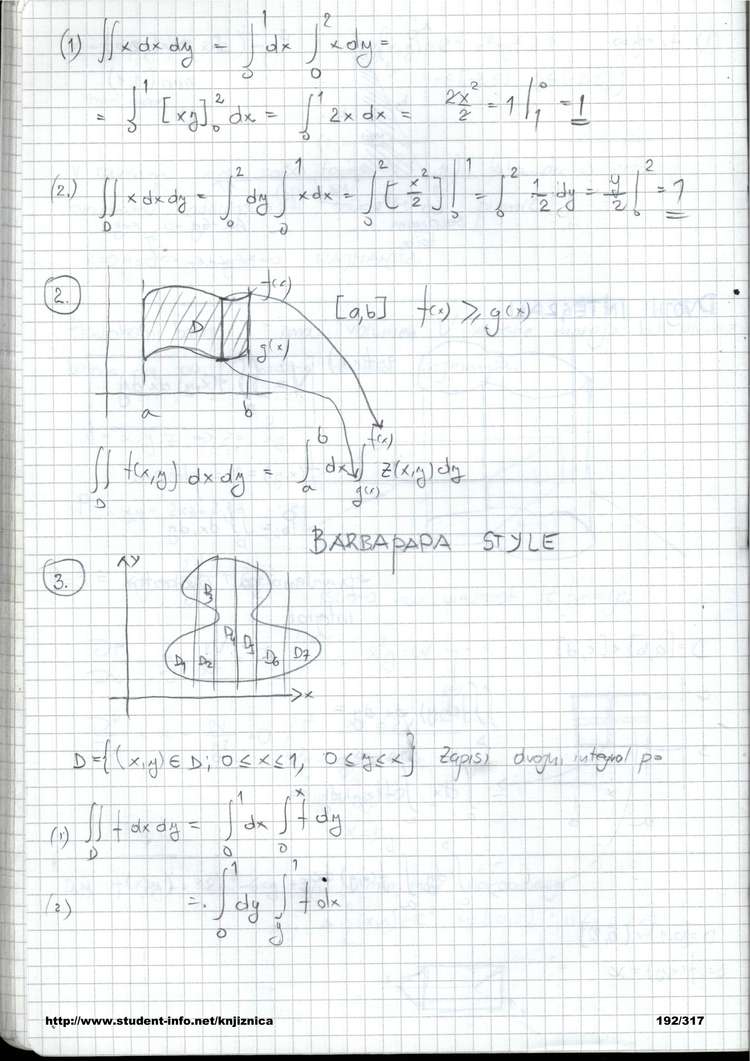 (1) ∬ x dx dy = ∫₀¹ dx ∫₀² x dy =
= ∫₀¹ [xy]₀² dx = ∫₀¹ 2x dx = 2x²/2 = 1 |₁⁰ = 1
(2.) ∬_D x dx dy = ∫₀² dy ∫₀¹ x dx = ∫₀² [x²/2] |₀¹ = ∫₀² 1/2 dy = y/2 |₀² = 1
2.
f(x)
[a,b] f(x) ≥ g(x)
D
g(x)
a b
∬_D f(x,y) dx dy = ∫_a^b dx ∫_{g(x)}^{f(x)} z(x,y) dy
BARBAPAPA STYLE
3.
y
D3
D4 D5
D1 D2 D6 D7
x
D = {(x,y) ∈ D; 0 ≤ x ≤ 1, 0 ≤ y ≤ x} Zapiši dvojni integral po
(1) ∬_D f dx dy = ∫₀¹ dx ∫₀ˣ f dy
(2) = ∫₀¹ dy ∫_y¹ f dx
http://www.student-info.net/knjiznica 192/317